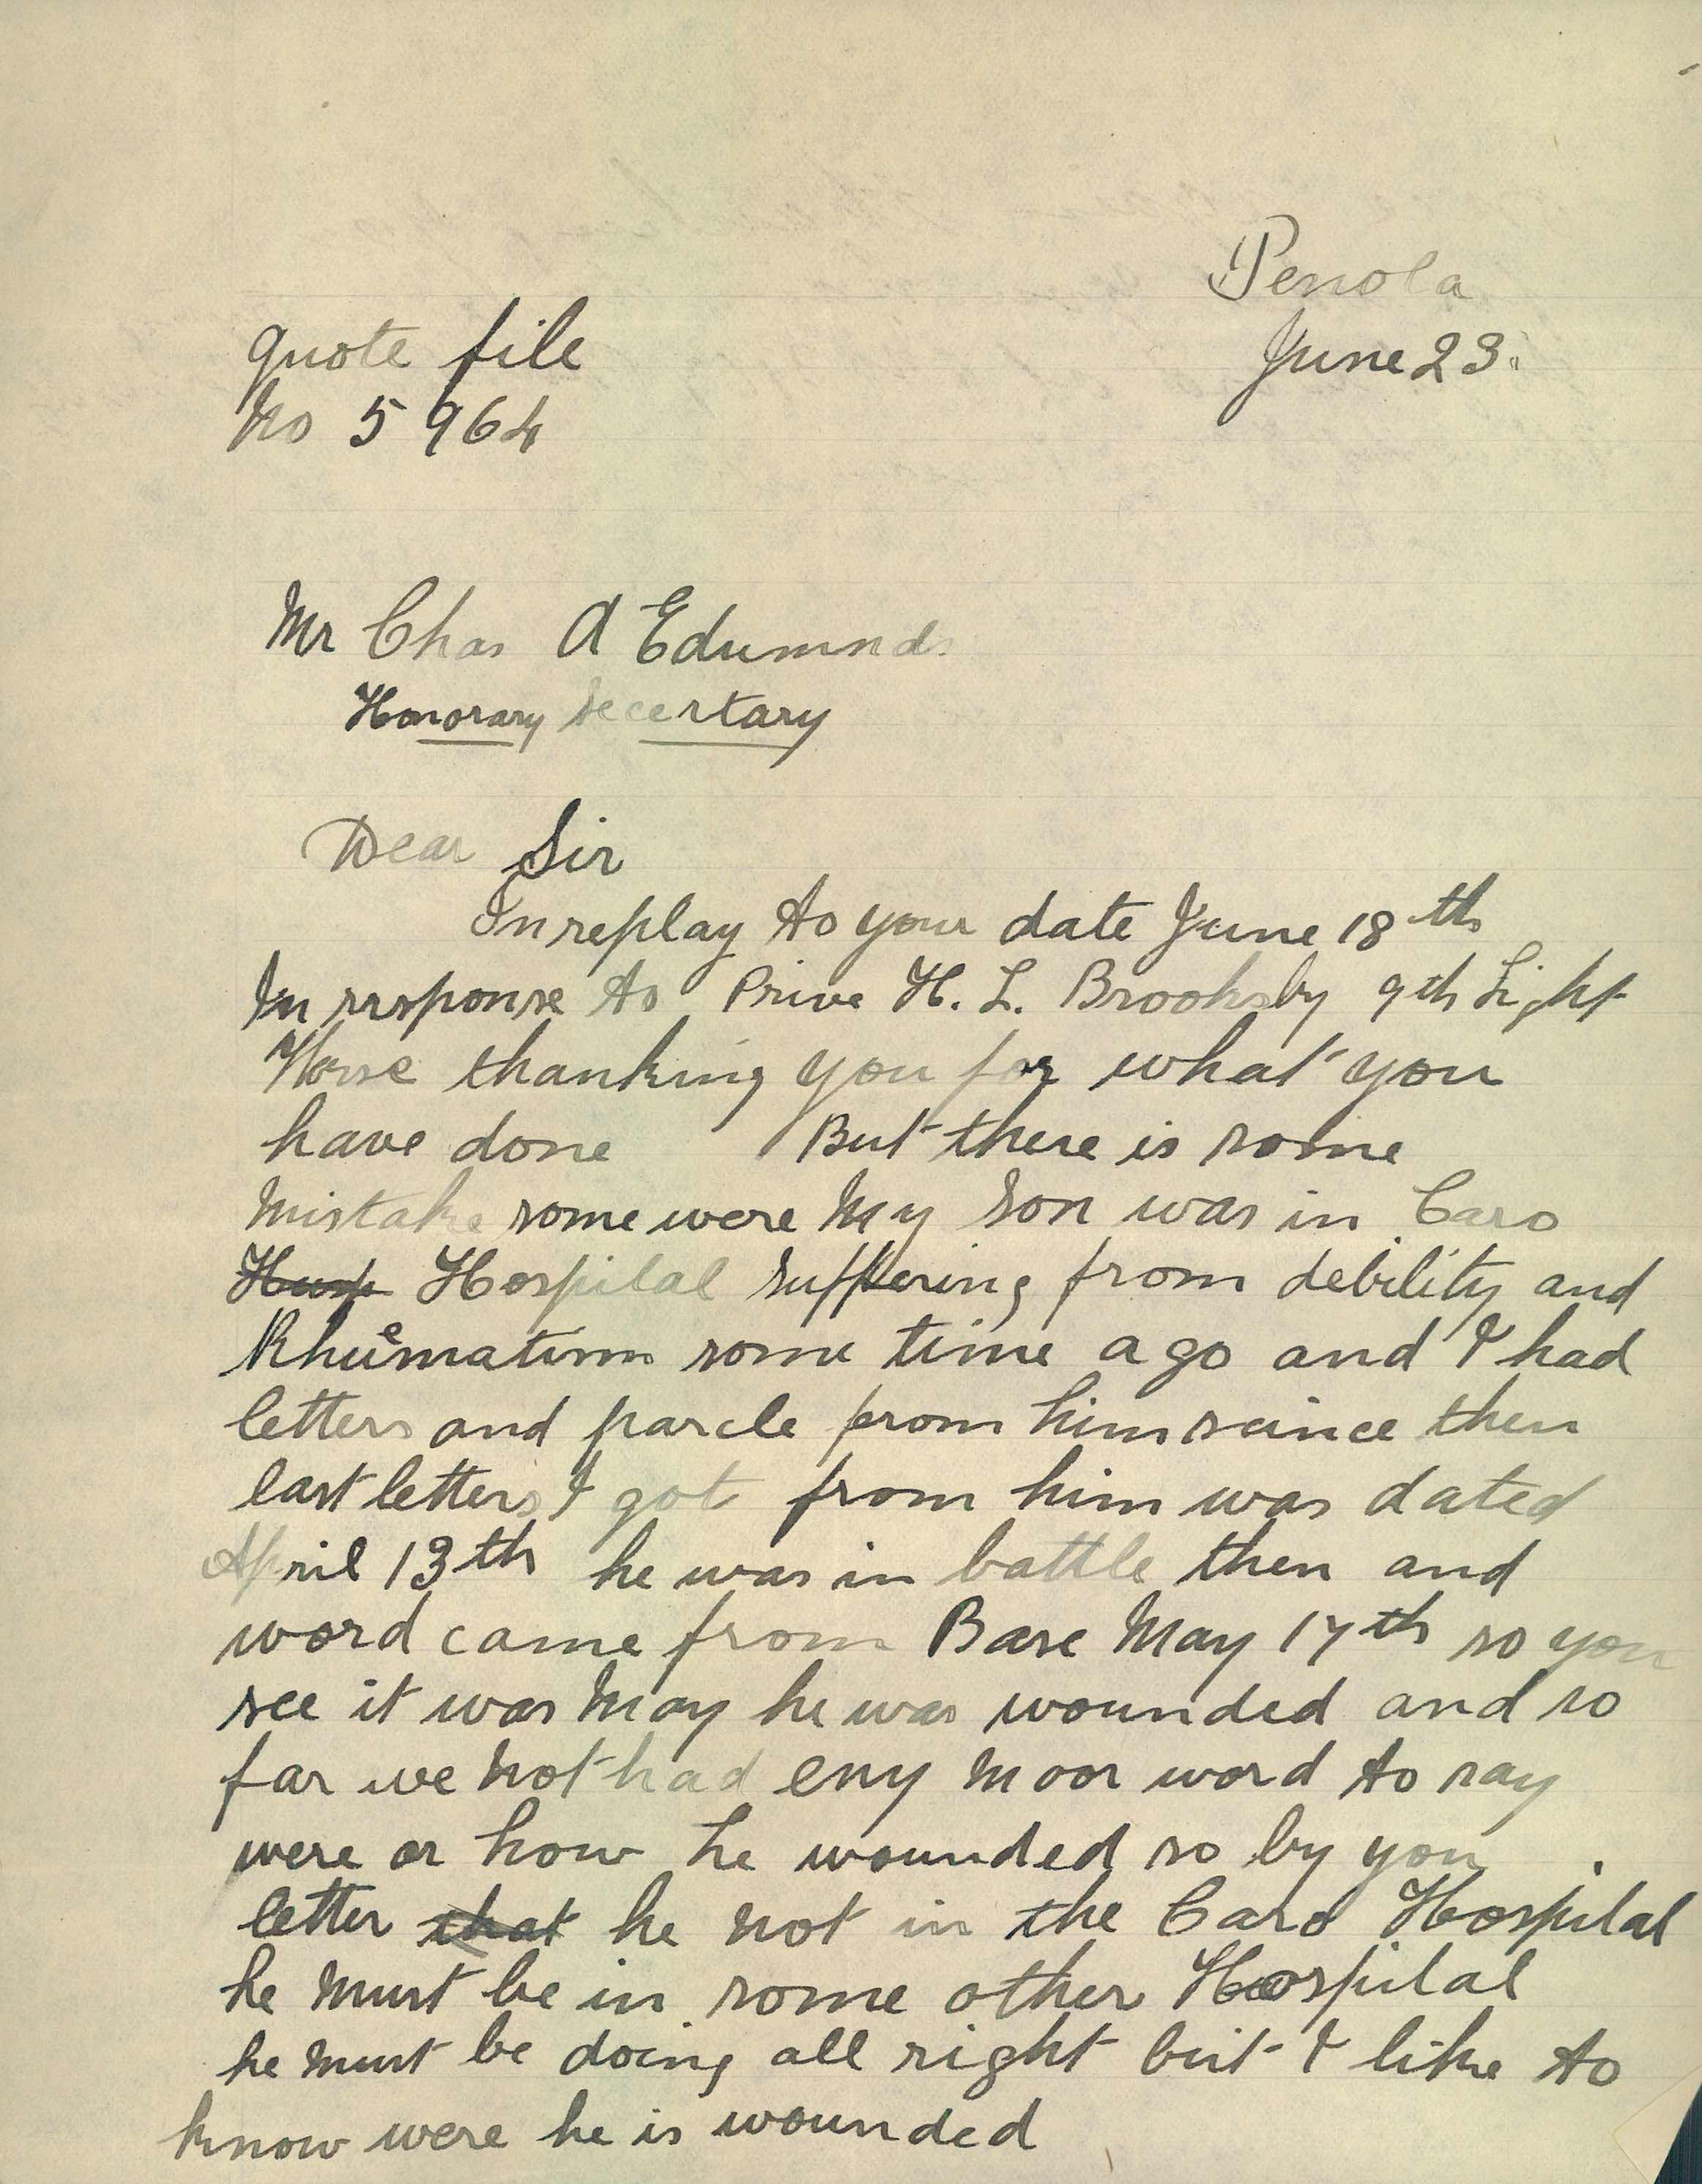 Penola
June 23.
quote file
No 5964
Mr Chas A Edumnds
Honorary Secertary
Dear Sir
In replay to your date June 18th
In rrsponse to Prive H. L. Brooksby 9th Light
Horse thanking you for what you
have done But there is some
mistake some were My Son was in Caro
Hosp Hospital Suffering from debility and
Rhuematism some time ago and I had
letters and parcle from him seince then
last letters I got from him was dated
April 13th he was in battle then and
word came from Base May 17th so you
see it was May he was wounded and so
far we not had eny moor word to say
were or how he wounded so by you
letter that he not in the Caro Hospital
he must be in some other Hospital
he must be doing all right but I like to
know were he is wounded